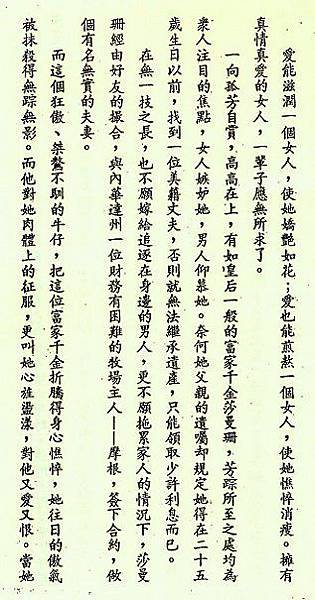 愛能滋潤一個女人，使她嬌艷如花；愛也能煎熬一個女人，使她憔悴消瘦。擁有
真情真愛的女人，一輩子應無所求了。
一向孤芳自賞，高高在上，有如皇后一般的富家千金莎曼珊，芳踪所至之處均為
衆人注目的焦點，女人嫉妒她，男人仰慕她。奈何她父親的遺囑却規定她得在二十五
歲生日以前，找到一位美籍丈夫，否則就無法繼承遺產，只能領取少許利息而已。
在無一技之長，也不願嫁給追逐在身邊的男人，更不願拖累家人的情況下，莎曼
珊經由好友的撮合，與內華達州一位財務有困難的牧場主人——摩根，簽下合約，做
個有名無實的夫妻。
而這個狂傲、桀驁不馴的牛仔，把這位富家千金折騰得身心憔悴，她往日的傲氣
被抹殺得無踪無影。而他對她肉體上的征服，更叫她心旌盪漾，對他又愛又恨。當她